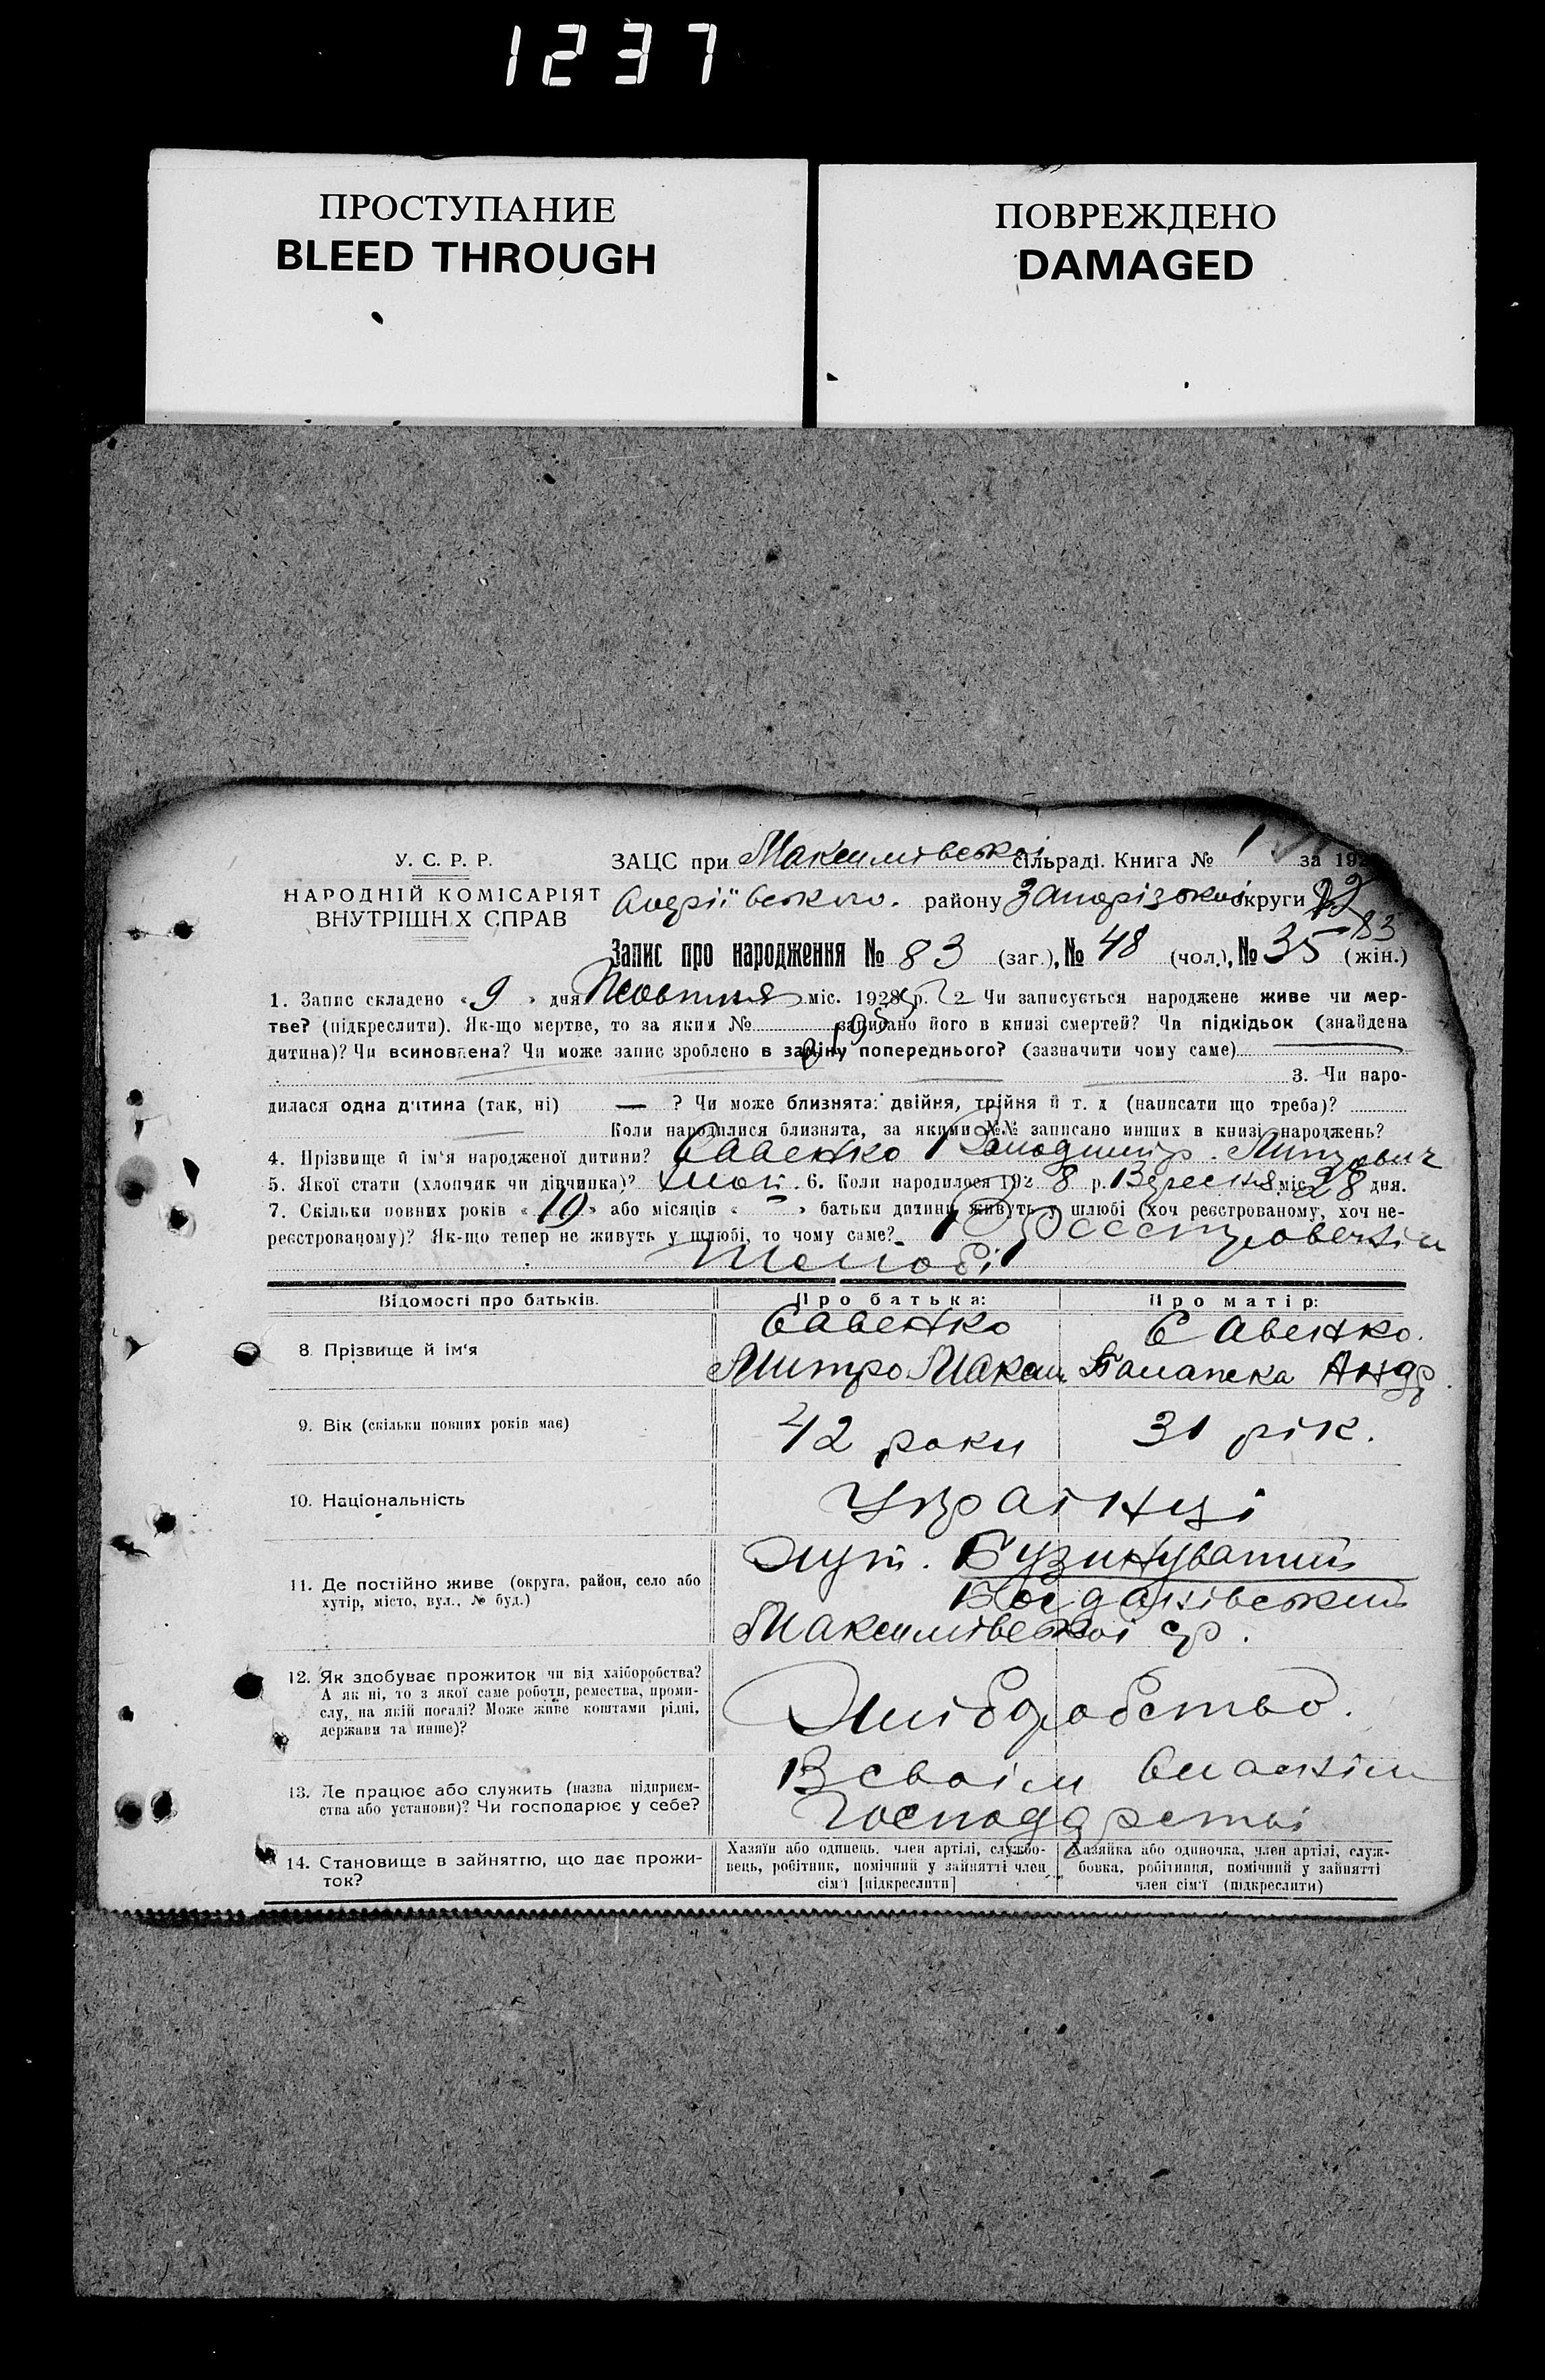 1237
ПРОСТУПАНИЕ
BLEED THROUGH
ПОВРЕЖДЕНО
DAMAGED
У. С. Р. Р.
НАРОДНІЙ КОМІСАРІЯТ
ВНУТРІШН Х СПРАВ
ЗАЦС при Максимівської сільраді. Книга № 1 за 192
Андріївського. району Запорізької округи
83
Запис про народження № 83 (заг.), № 48 (чол.), № 35 (жін.)
1. Запис складено « 9 » дня Жовтня міс. 1928 р. 2 Чи записується народжене живе чи мер-
тве? (підкреслити). Як-що мертве, то за яким № записано його в книзі смертей? Чи підкідьок (знайдена
дитина)? Чи всиновлена? Чи може запис зроблено в заміну попереднього? (зазначити чому саме)
3. Чи наро-
дилася одна дитина (так, ні) — ? Чи може близнята: двійня, трійня й т. д (написати що треба)?
Коли народилися близнята, за якими №№ записано инших в книзі народжень?
4. Прізвище й ім'я народженої дитини? Савенко Володимір. Митрович
5. Якої стати (хлопчик чи дівчинка)? хлоп. 6. Коли народилося 192 8 р. Вересня міс. 28 дня.
7. Скільки повних років « 10 » або місяців « – » батьки дитини живуть у шлюбі (хоч реєстрованому, хоч не-
реєстрованому)? Як-що тепер не живуть у шлюбі, то чому саме? В Реєстрованім
шлюбі
Відомості про батьків. Про батька: Про матір:
8. Прізвище й ім'я
Савенко Савенко.
Митро Макси Палажка Андр.
9. Вік (скільки повних років має) 42 роки 31 рік.
10. Національність Українці
11. Де постійно живе (округа, район, село або
хутір, місто, вул., № буд.)
Хут. Бузинуватий
Богданівський
Максимівської ср.
12. Як здобуває прожиток чи від хліборобства?
А як ні, то з якої саме роботи, ремества, проми-
слу, на якій посаді? Може живе коштами рідні,
держави та инше)?
Хліборобство.
13. Де працює або служить (назва підприєм-
ства або установи)? Чи господарює у себе?
В своїм власнім
господарстві
14. Становище в зайняттю, що дає прожи-
ток?
Хазяїн або одинець, член артілі, службо-
вець, робітник, помічний у зайнятті член
сім'ї [підкреслити]
Хазяйка або одиночка, член артілі, служ-
бовка, робітниця, помічний у зайнятті
член сім'ї (підкреслити)